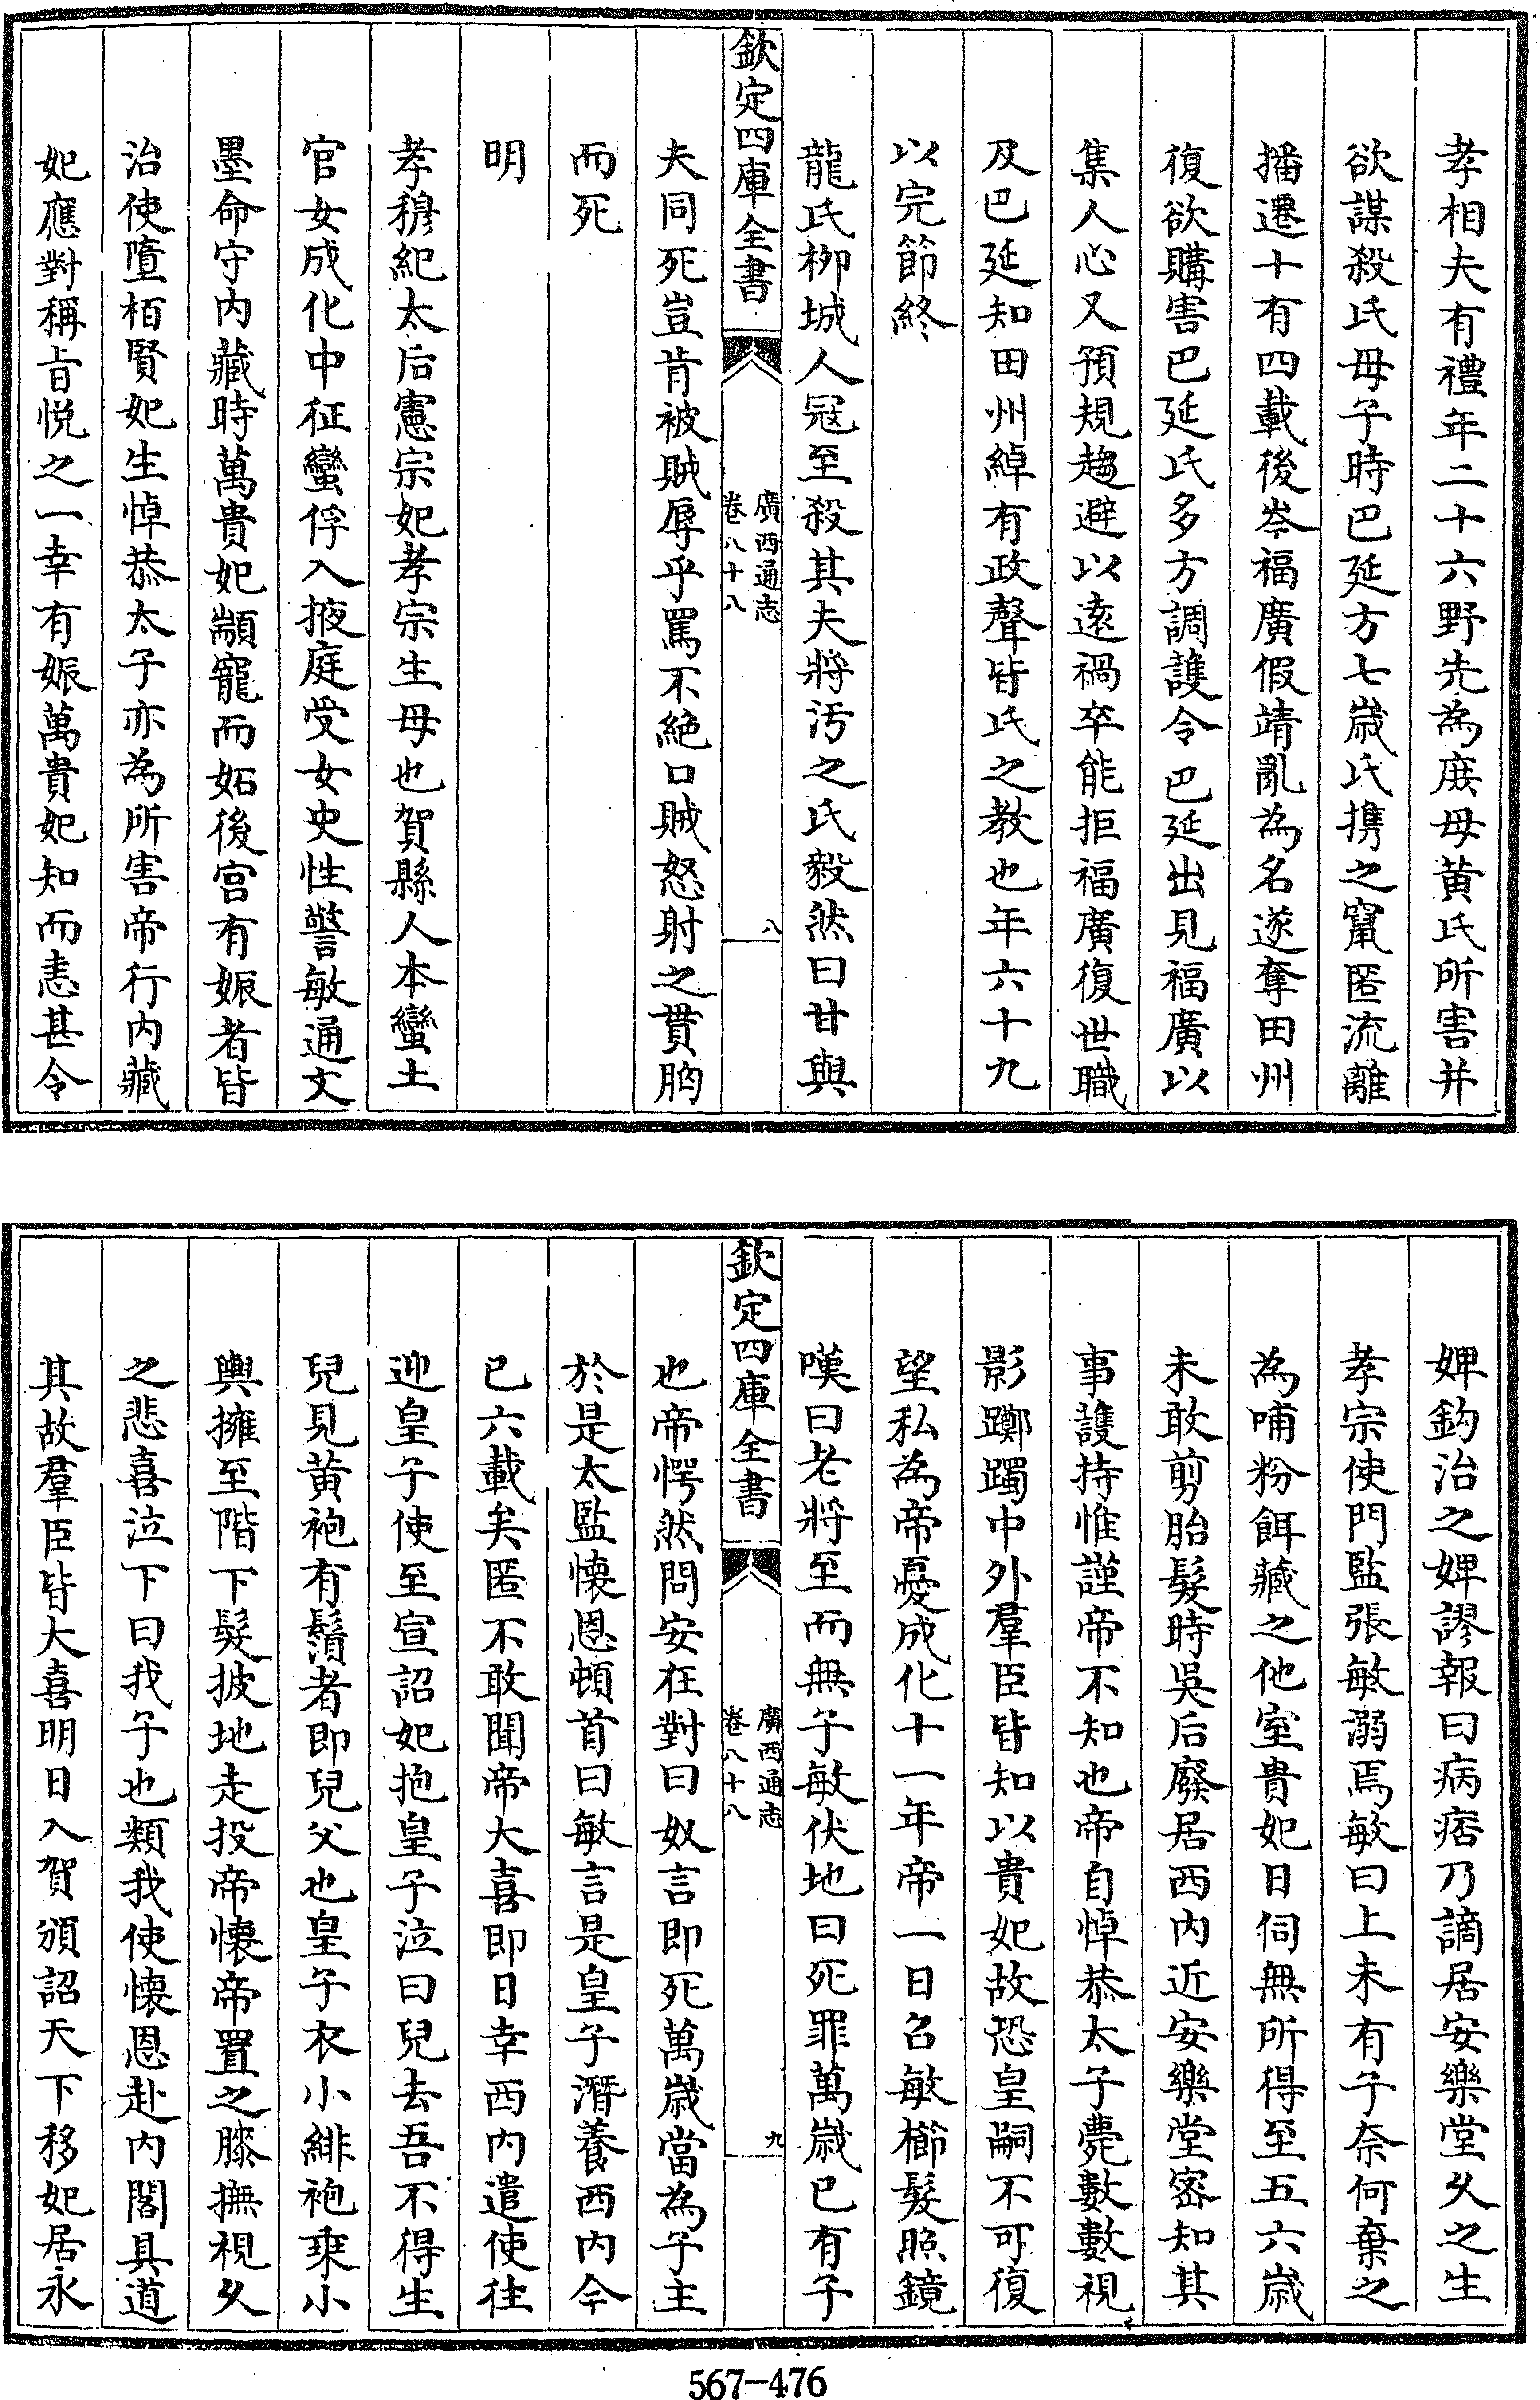 孝相夫有禮年二十六野先為庶母黄氏所害并
欲謀殺氏母子時巴延方七歲氏携之竄匿流離
播遷十有四載後岑福廣假靖亂為名遂奪田州
復欲購害巴延氏多方調護令巴延出見福廣以
集人心又預規趨避以遠禍卒能拒福廣復世職
及巴延知田州綽有政聲皆氏之教也年六十九
以完節終
龍氏柳城人冦至殺其夫將汚之氏毅然曰甘與
欽定四庫全書
廣西通志
卷八十八
八
夫同死豈肯被賊辱乎罵不絶口賊怒射之貫胸
而死
明
孝穆紀太后憲宗妃孝宗生母也賀縣人本蠻土
官女成化中征蠻俘入掖庭受女史性警敏通文
墨命守内藏時萬貴妃顓寵而妬後宫有娠者皆
治使墮栢賢妃生悼恭太子亦為所害帝行内藏
妃應對稱旨悦之一幸有娠萬貴妃知而恚甚令
婢鈎治之婢謬報曰病痞乃謫居安樂堂乆之生
孝宗使門監張敏溺焉敏曰上未有子奈何棄之
為哺粉餌藏之他室貴妃日伺無所得至五六歲
未敢剪胎髮時吳后廢居西内近安樂堂密知其
事護持惟謹帝不知也帝自悼恭太子薨數數視
影躑躅中外羣臣皆知以貴妃故恐皇嗣不可復
望私為帝憂成化十一年帝一日召敏櫛髮照鏡
嘆曰老將至而無子敏伏地曰死罪萬歲已有子
欽定四庫全書
廣西通志
卷八十八
九
也帝愕然問安在對曰奴言即死萬歲當為子主
於是太監懐恩頓首曰敏言是皇子潛養西内今
已六載矣匿不敢聞帝大喜即日幸西内遣使往
迎皇子使至宣詔妃抱皇子泣曰兒去吾不得生
兒見黄袍有鬚者即兒父也皇子衣小緋袍乗小
輿擁至階下髮披地走投帝懐帝置之膝撫視乆
之悲喜泣下曰我子也類我使懐恩赴内閣具道
其故羣臣皆大喜明日入賀頒詔天下移妃居永
567-476